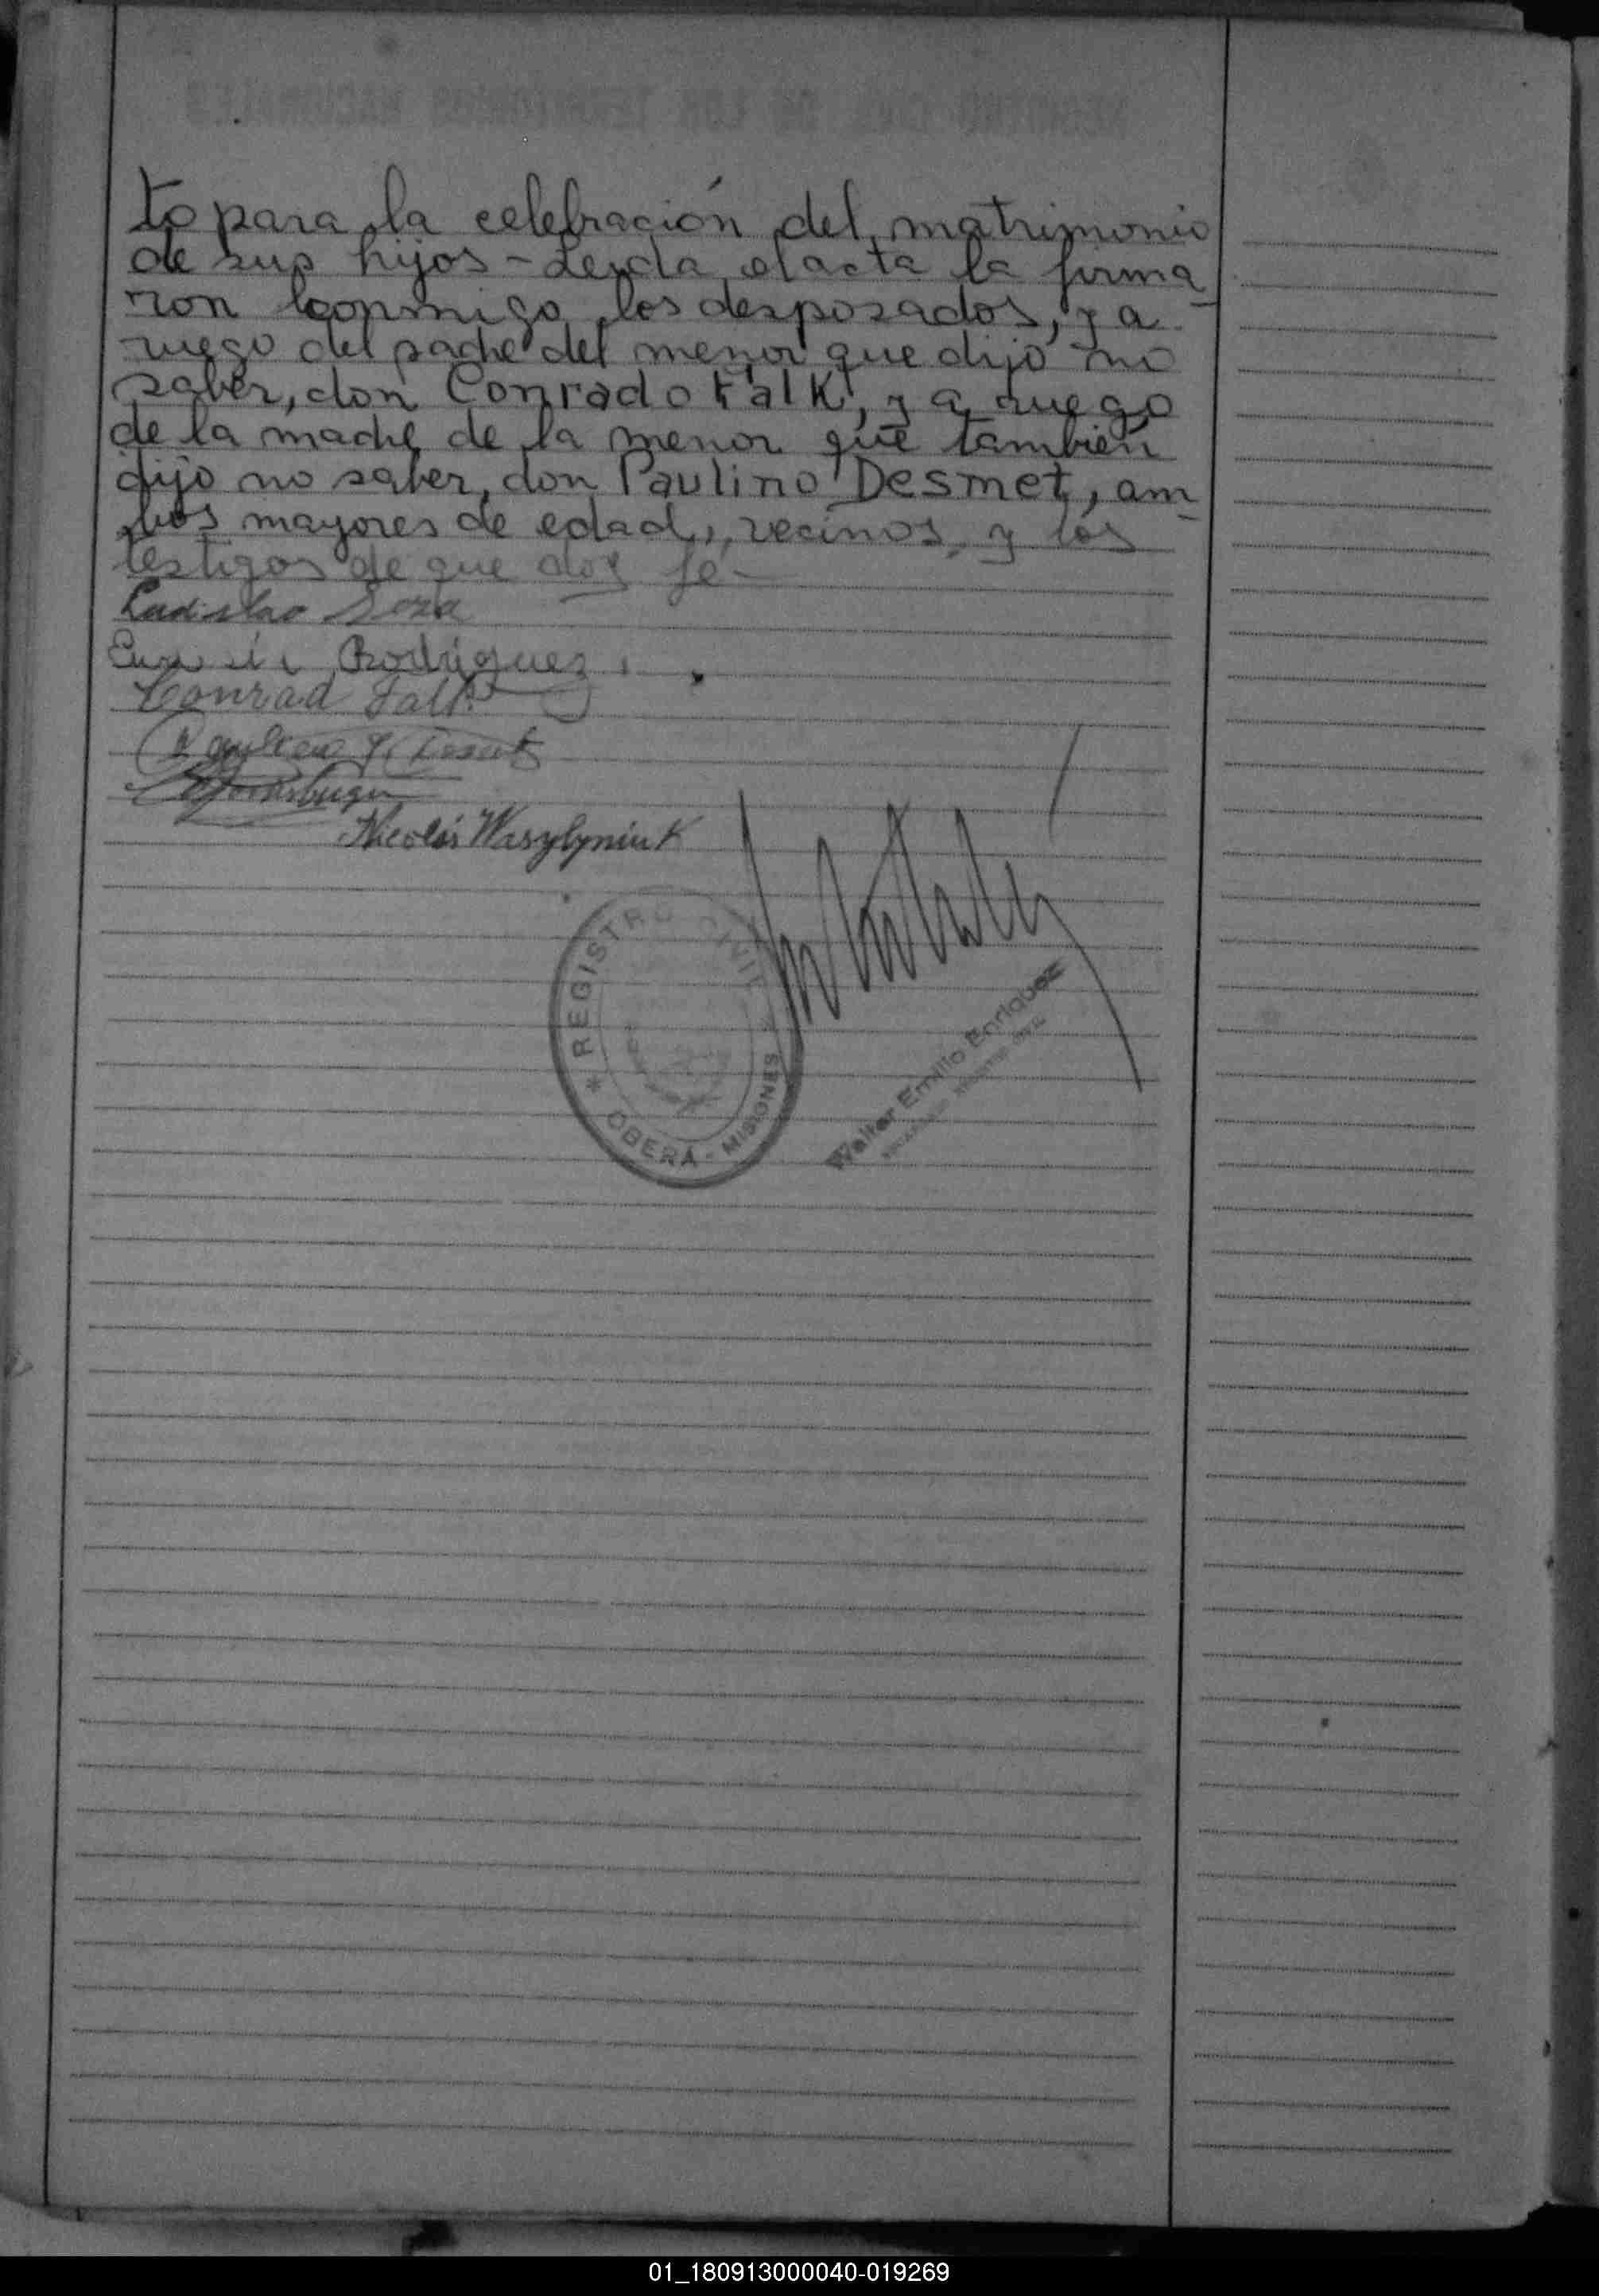 to para la celebración del matrimonio
de sus hijos - Leida el acta la firma
ron conmigo los desposados, y a
ruego del padre del menor que dijo no
saber, don Conrado Falk, y a ruego
de la madre de la menor que también
dijo no saber, don Paulino Desmet, am
bos mayores de edad, vecinos, y los
testigos de que doy fe -
Ladislao Soza
Rodriguez
Conrad Falk
Nicolás Wasylyniuk
* REGISTRO CIVIL *
OBERA - MISIONES
Walter Emilio Enriquez
01_180913000040-019269